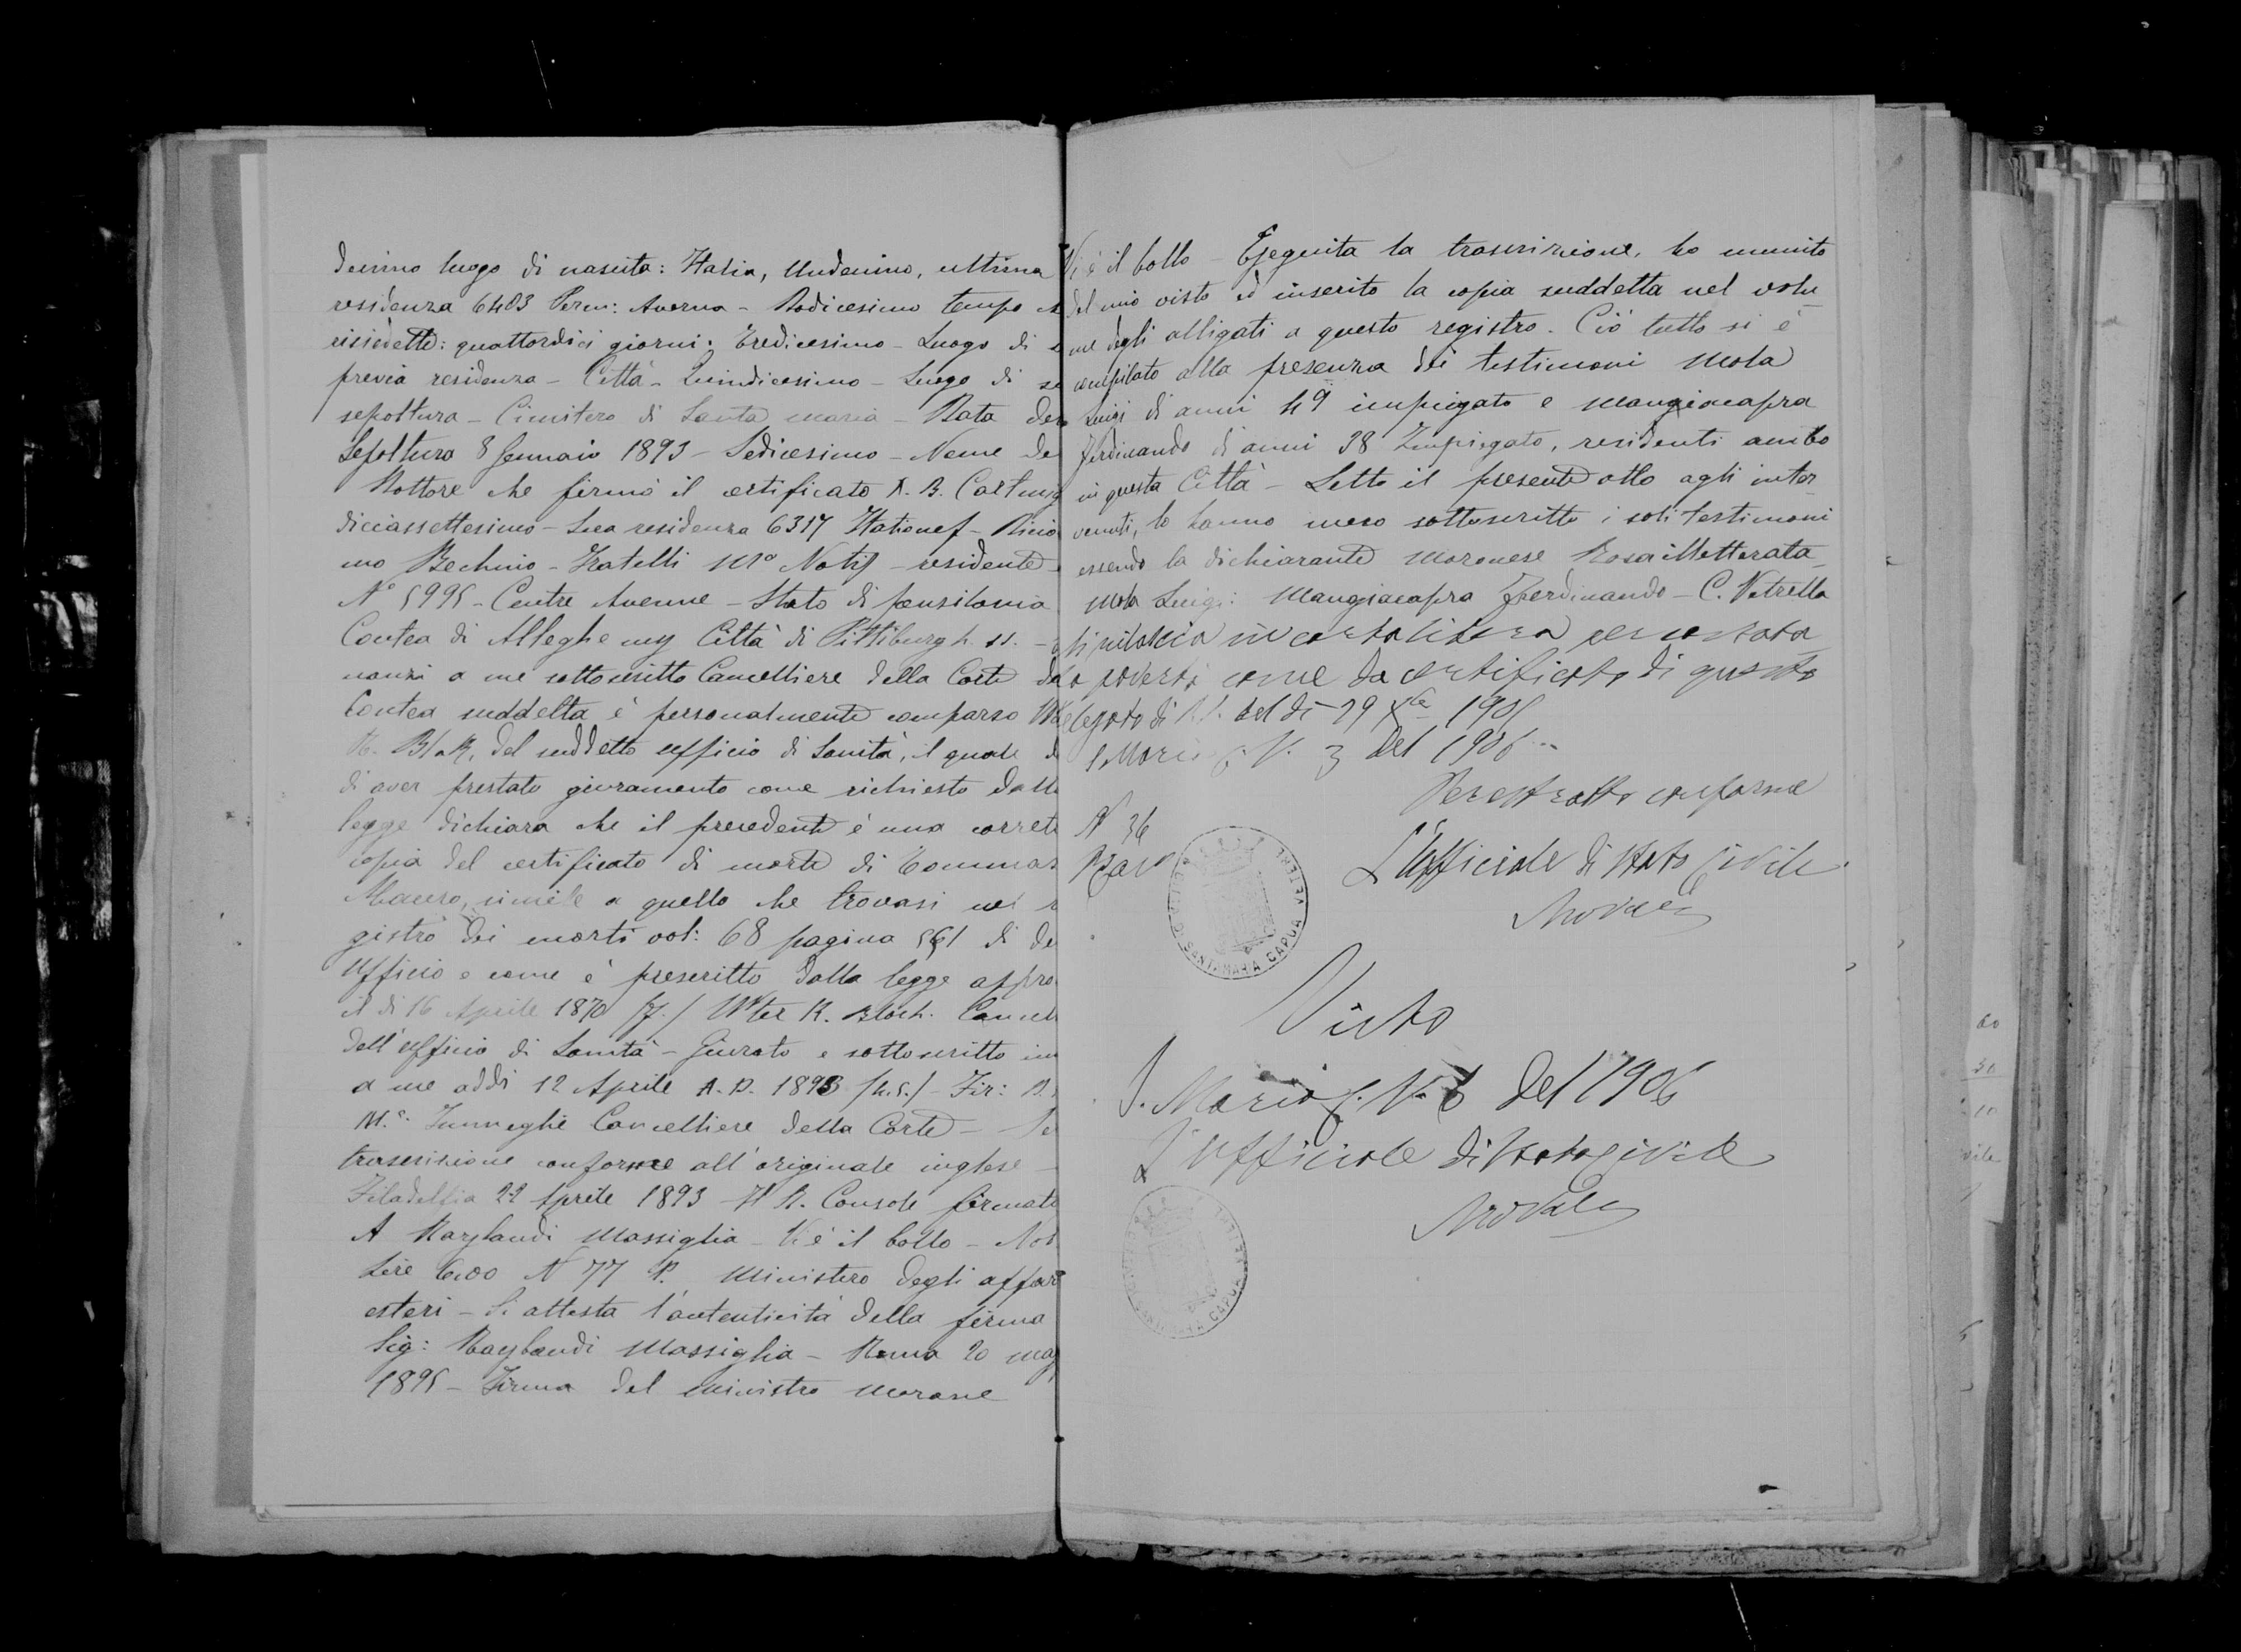 decimo luogo di nascita: Italia, Undecimo, ultima
residenza 6403 Penn: Averna - Dodicesimo tempo
risiedette: quattordici giorni: Tredicesimo - Luogo di
previa residenza - Città - Quindicesimo - Luogo di
sepoltura - Cimitero di Santa Maria - Data
Sepoltura 8 Gennaio 1893 - Sedicesimo - Nome de
Dottore che firmò il certificato A. B.
diciassettesimo - Sua residenza 6317
mo Bechino - Fratelli - residente
N° 5995 - Centre Avenue - Stato di Pensilvania
Contea di Allegheny Città di Pittsburgh. ss. -
nanzi a me sottoscritto Cancelliere della Corte de
Contea suddetta è personalmente comparso
del suddetto ufficio di Sanità, il quale d
di aver prestato giuramento come richiesto dalla
legge dichiara che il precedente è una corret
copia del certificato di morte di Tommas
Mauro, simile a quello che trovasi nel r
gistro dei morti vol: 68 pagina 561 di de
Ufficio e come è prescritto dalla legge appro
il dì 16 Aprile 1870 /f./ Wter R. Cancell
dell'ufficio di Sanità - Giurato e sottoscritto inn
a me addì 12 Aprile A. D. 1893 /L.S./ - Fir:
Cancelliere della Corte -
trascrizione conforme all'originale inglese -
Filadelfia 22 Aprile 1893 - Il R. Console firmato
A Raybaudi Massiglia - Vi è il bollo -
Lire 6.00 N 77 P. Ministero degli affari
esteri - Si attesta l'autenticità della firma
Sig: Raybaudi Massiglia - Roma 20 mag
1895 - Firma del Ministro
Vi è il bollo - Eseguita la trascrizione, ho munito
del mio visto ed inserito la copia suddetta nel volu
me degli alligati a questo registro. Ciò tutto si è
compilato alla presenza dei testimoni Mola
Luigi di anni 49 impiegato e Mangiacapra
Ferdinando di anni 38 Impiegato, residenti ambo
in questa Città - Letto il presente atto agli inter
venuti, lo hanno meco sottoscritto i soli testimoni
essendo la dichiarante Moronese Rosa illetterata
Mola Luigi: Mangiacapra Ferdinando - C. Vetrella
Si rilascia in carta libera per constata
ta povertà come da certificato di questo
delegato di P.S. del dì 29 Xbre 1905
S. Maria C. V. 3 del 1906
Per estratto conforme
N 36
L'Ufficiale di Stato Civile
SANTA MARIA CAPUA VETERE
Visto
S. Maria C. V. 3 del 1906
L'Ufficiale di Stato Civile
CAPUA VETERE